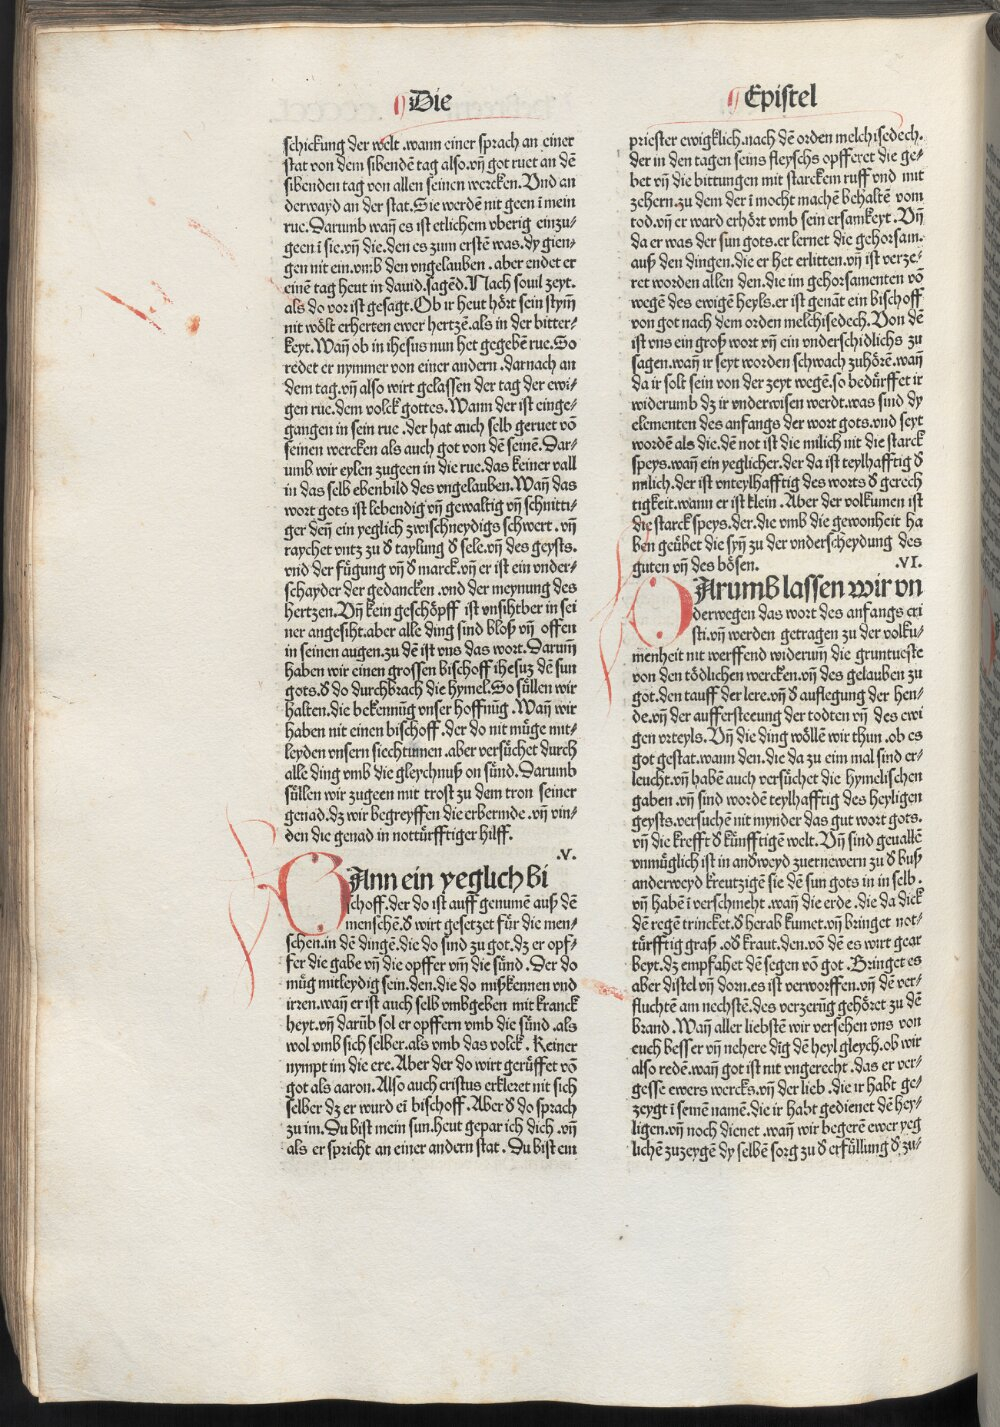 Die
Epistel
schickung der welt .wann einer sprach an einer
stat von dem sibendē tag also.vn̄ got ruet an dē
sibenden tag von allen seinen wercken.Vnd an
derwayd an der stat.Sie werdē nit geen ī mein
rue.Darumb wan̄ es ist etlichem vberig einzu⸗
geen ī sie.vn̄ die.den es zum erstē was.dy gien⸗
gen nit ein.vmb den vngelauben .aber endet er
einē tag heut in dauid.sagēd.Nach souil zeyt.
als do vor ist gesagt.Ob ir heut hört sein stym̄
nit wölt erherten ewer hertzē.als in der bitter⸗
keyt.Wan̄ ob in ihesus nun het gegebē rue.So
redet er nymmer von einer andern .darnach an
dem tag.vn̄ also wirt gelassen der tag der ewi⸗
gen rue.dem volck gottes.Wann der ist einge⸗
gangen in sein rue .der hat auch selb geruet vō
seinen wercken als auch got von dē seinē.Dar⸗
umb wir eylen zugeen in die rue.das keiner vall
in das selb ebenbild des vngelauben.Wan̄ das
wort gots ist lebendig vn̄ gewaltig vn̄ schnitti⸗
ger den̄ ein yeglich zwischneydigs schwert .vn̄
raychet vntz zu d̄ taylung d̄ sele.vn̄ des geysts.
vnd der fügung vn̄ d̄ marck.vn̄ er ist ein vnder⸗
schayder der gedancken .vnd der meynung des
hertzen.Vn̄ kein geschöpff ist vnsihtber in sei
ner angesiht.aber alle ding sind bloß vn̄ offen
in seinen augen.zu dē ist vns das wort.Darum̄
haben wir einen grossen bischoff ihesuz dē sun
gots.d̄ do durchbrach die hymel.So süllen wir
halten.die bekennūg vnser hoffnūg .Wan̄ wir
haben nit einen bischoff.der do nit müge mit⸗
leyden vnsern siechtumen .aber versüchet durch
alle ding vmb die gleychnuß on sünd.Darumb
süllen wir zugeen mit trost zu dem tron seiner
genad.dz wir begreyffen die erbermde .vn̄ vin⸗
den die genad in nottürfftiger hilff.
.V.
GAnn ein yeglich bi
schoff.der do ist auff genumē auß dē
menschē.d̄ wirt gesetzet für die men⸗
schen.in dē dingē.die do sind zu got.dz er opf⸗
fer die gabe vn̄ die opffer vm̄ die sünd .Der do
müg mitleydig sein.den.die do mißkennen vnd
irren.wan̄ er ist auch selb vmbgeben mit kranck
heyt.vn̄ darūb sol er opffern vmb die sünd .als
wol vmb sich selber.als vmb das volck. Keiner
nympt im die ere.Aber der do wirt gerüffet vō
got als aaron.Also auch cristus erkleret nit sich
selber dz er wurd eī bischoff.Aber d̄ do sprach
zu im.Du bist mein sun.heut gepar ich dich .vn̄
als er spricht an einer andern stat .Du bist ein
priester ewigklich.nach dē orden melchisedech.
der in den tagen seins fleyschs opfferet die ge⸗
bet vn̄ die bittungen mit starckem ruff vnd mit
zehern.zu dem der ī mocht machē behaltē vom
tod.vn̄ er ward erhört vmb sein ersamkeyt .Vn̄
da er was der sun gots.er lernet die gehorsam.
auß den dingen.die er het erlitten.vn̄ ist verze⸗
ret worden allen den.die im gehorsamenten vō
wegē des ewigē heyls.er ist genāt ein bischoff
von got nach dem orden melchisedech.Von dē
ist vns ein groß wort vn̄ ein vnderschidlichs zu
sagen.wan̄ ir seyt worden schwach zuhörē.wan̄
da ir solt sein von der zeyt wegē.so bedürffet ir
widerumb dz ir vnderwisen werdt.was sind dy
elementen des anfangs der wort gots.vnd seyt
wordē als die.dē not ist die milich nit die starck
speys.wan̄ ein yeglicher.der da ist teylhafftig d̄
milch.der ist vnteylhafftig des worts d̄ gerech
tigkeit.wann er ist klein .Aber der volkumen ist
die starck speys.der.die vmb die gewonheit ha
ben geübet die syn̄ zu der vnderscheydung des
guten vn̄ des bösen.
.VI.
DArumb lassen wir vn
derwegen das wort des anfangs cri
sti.vn̄ werden getragen zu der volku⸗
menheit nit werffend widerum̄ die gruntueste
von den tödlichen wercken.vn̄ des gelauben zu
got.den tauff der lere.vn̄ d̄ auflegung der hen⸗
de.vn̄ der aufferstecung der todten vn̄ des ewi
gen vrteyls.Vn̄ die ding wöllē wir thun .ob es
got gestat.wann den.die da zu eim mal sind er⸗
leucht.vn̄ habē auch versüchet die hymelischen
gaben .vn̄ sind wordē teylhafftig des heyligen
geysts.versuchē nit mynder das gut wort gots.
vn̄ die krefft d̄ künfftigē welt.Vn̄ sind geuallē
vnmüglich ist in anḋweyd zuernewern zu d̄ buß
anderweyd kreutzigē sie dē sun gots in in selb.
vn̄ habē ī verschmeht .wan̄ die erde .die da dick
dē regē trincket.d̄ herab kumet.vn̄ bringet not⸗
türfftig graß .od̄ kraut.den.vō dē es wirt gear
beyt.dz empfahet dē segen vō got .Bringet es
aber distel vn̄ dorn.es ist verworffen.vn̄ dē ver⸗
fluchtē am nechstē.des verzerūg gehöret zu dē
brand .Wan̄ aller liebstē wir versehen vns von
euch besser vn̄ nehere dig dē heyl gleych.ob wir
also redē.wan̄ got ist nit vngerecht .das er ver⸗
gesse ewers wercks.vn̄ der lieb .die ir habt ge⸗
zeygt ī seinē namē.die ir habt gedienet dē hey⸗
ligen.vn̄ noch dienet .wan̄ wir begerē ewer yeg
lichē zuzeygē dy selbē sorg zu d̄ erfüllung d̄ zu⸗